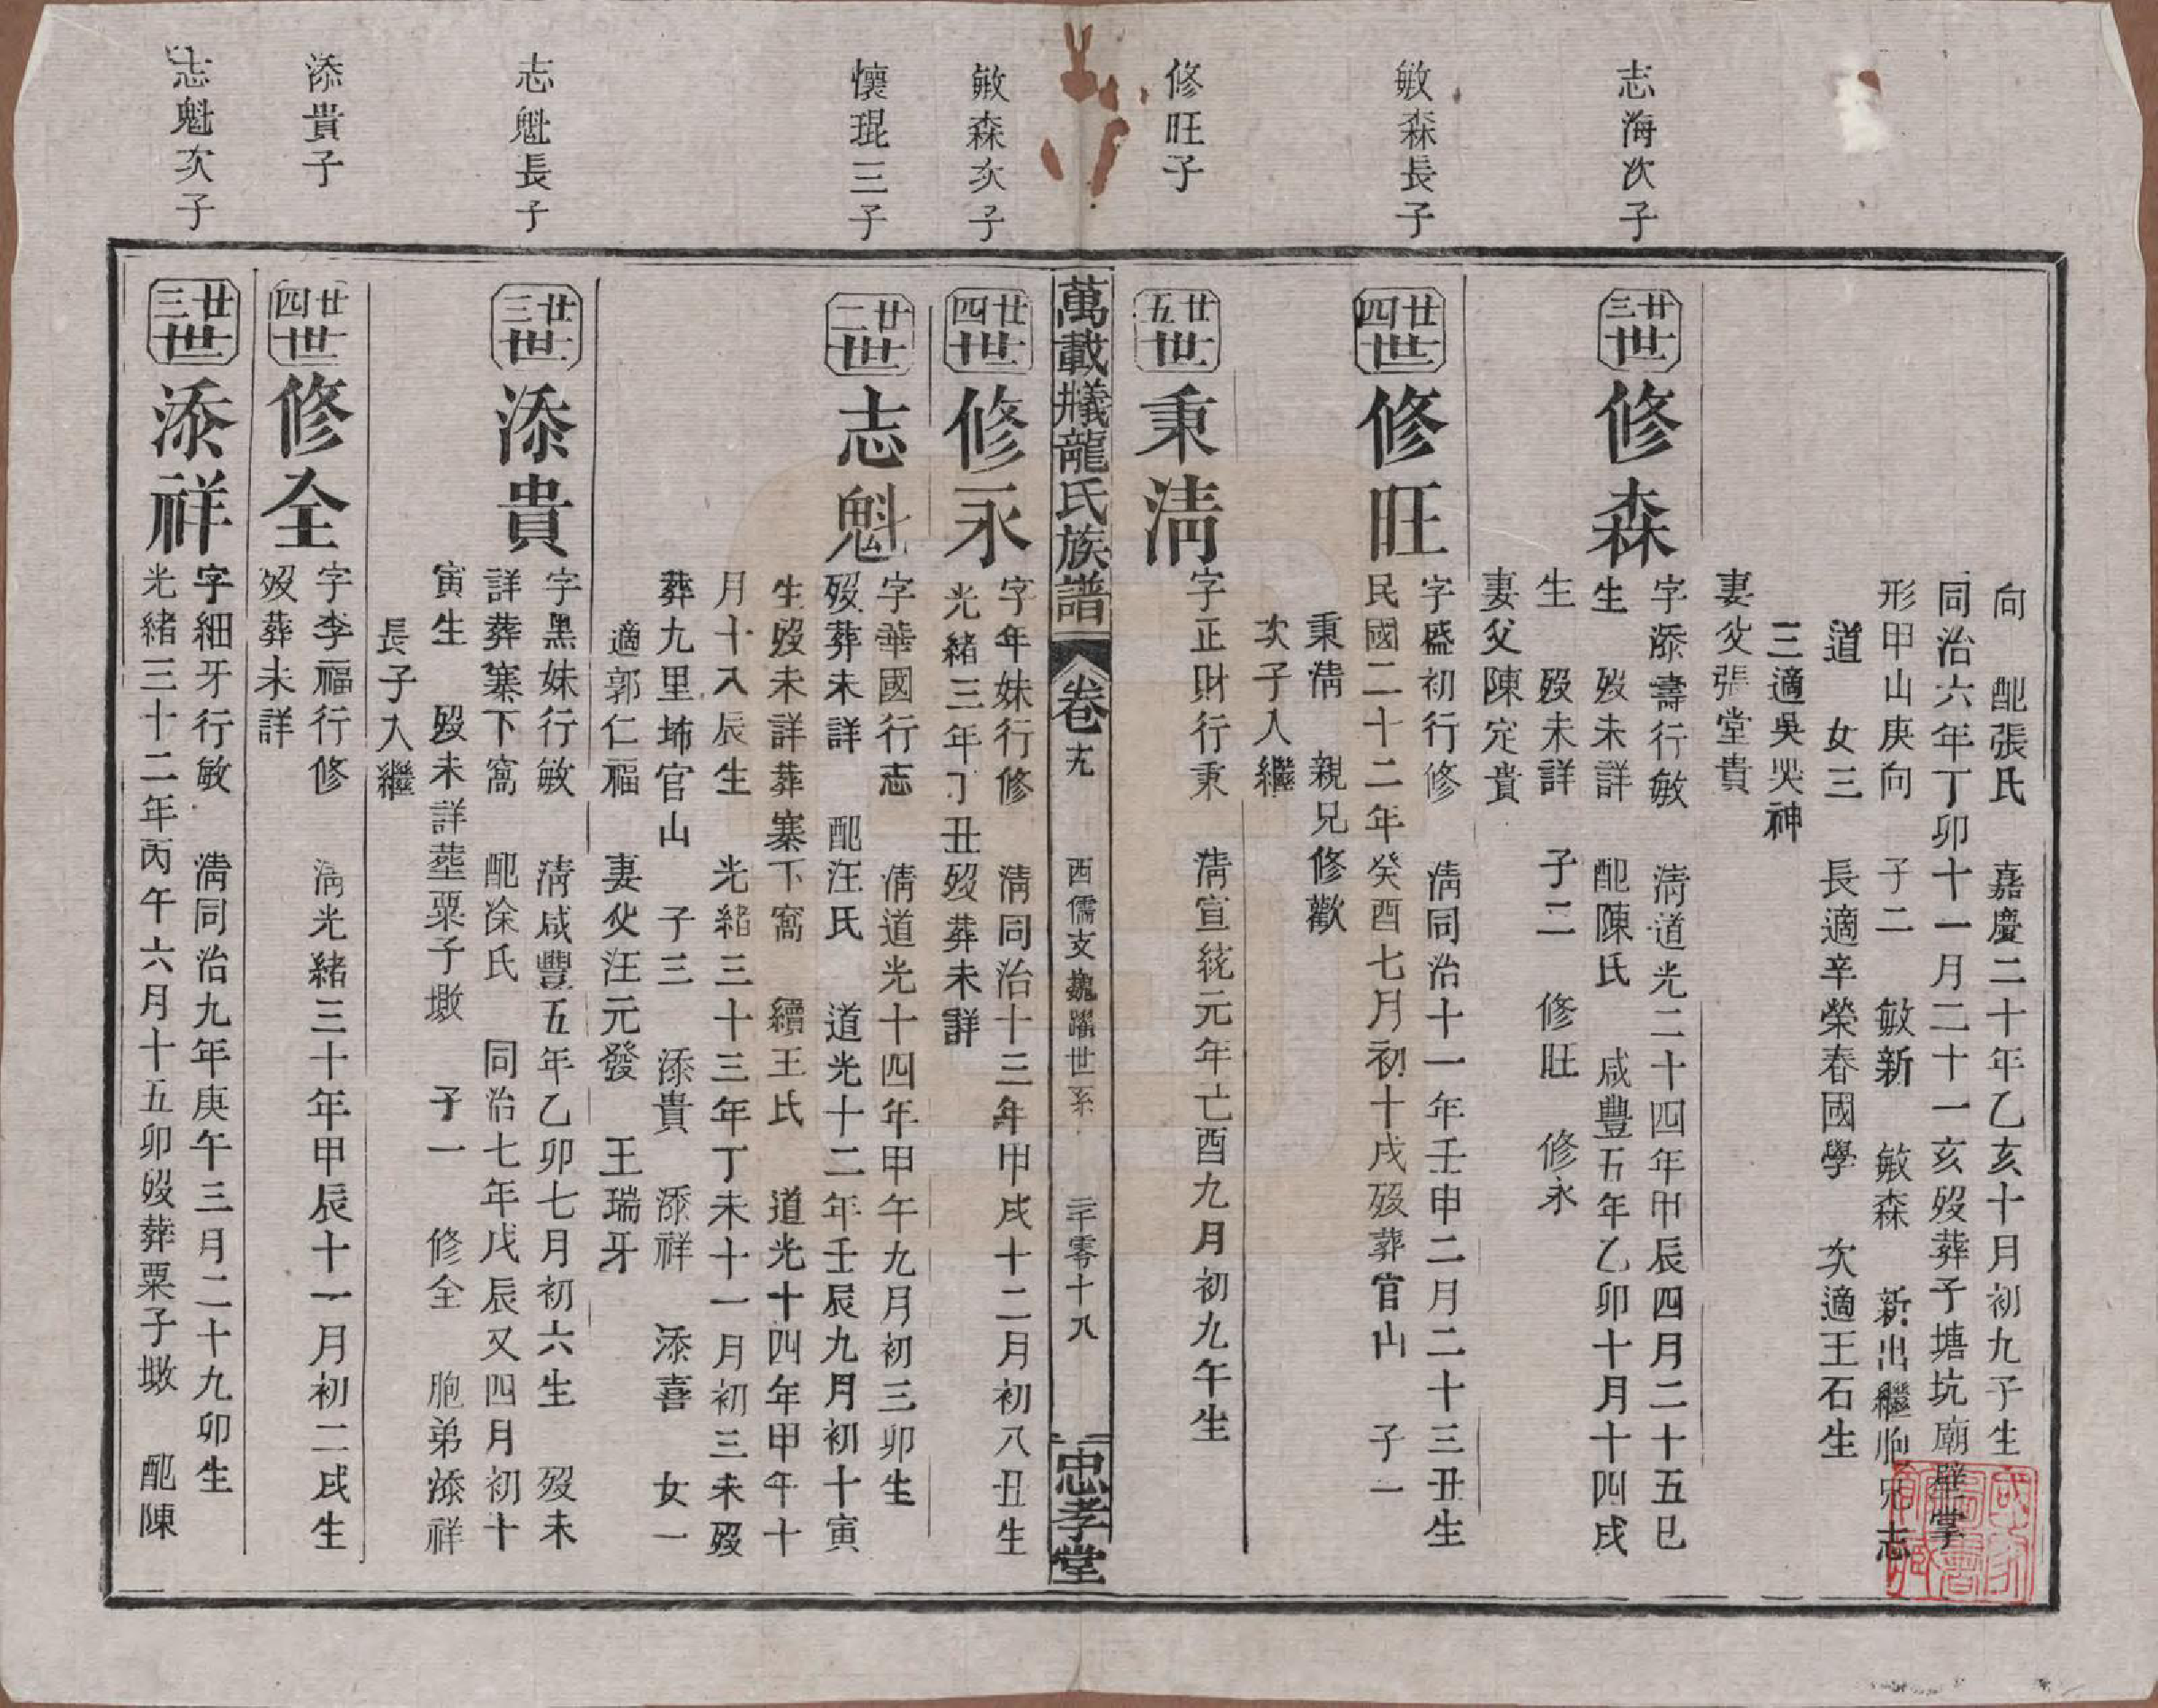 向　配張氏　嘉慶二十年乙亥十月初九子生
同治六年丁卯十一月二十一亥歿葬子塘坑廟壁掌
形甲山庚向　子二　敏新　敏森　新出繼胞兄志
道　女三　長適辛榮春國學　次適王石生
三適吳哭神
妻父張堂貴
志海次子
廿三世
修森
字添壽行敏　清道光二十四年甲辰四月二十五巳
生　歿未詳　配陳氏　咸豐五年乙卯十月十四戌
生　歿未詳　子二　修旺　修永
妻父陳定貴
敏森長子
廿四世
修旺
字盛初行修　清同治十一年壬申二月二十三丑生
民國二十二年癸酉七月初十戌歿葬官山　子一
秉淸　親兄修歡
次子入繼
修旺子
廿五世
秉淸
字正財行秉　清宣統元年己酉九月初九午生
萬載㸢龍氏族譜
卷　西儒支巍躍世系　二千零十八　忠孝堂
敏森次子
廿四世
修永
字年妹行修　清同治十三年甲戌十二月初八丑生
光緒三年丁丑歿葬未詳
懷琨三子
廿二世
志魁
字華國行志　倩道光十四年甲午九月初三卯生
歿葬未詳　配汪氏　道光十二年壬辰九月初十寅
生歿未詳葬寨下窩　續王氏　道光十四年甲午十
月十八辰生　光緒三十三年丁未十一月初三未歿
葬九里坲官山　子三　添貴　添祥　添喜　女一
適郭仁福　妻父汪元發　王瑞牙
志魁長子
廿三世
添貴
字黑妹行敏　清咸豐五年乙卯七月初六生　歿未
詳葬寨下窩　配凃氏　同治七年戊辰又四月初十
寅生　歿未詳葬粟子墩　子一　修全　胞弟添祥
長子入繼
添貴子
廿四世
修全
字李福行修　淸光緒三十年甲辰十一月初二戌生
歿葬未詳
志魁次子
廿三世
添祥
字細牙行敏　淸同治九年庚午三月二十九卯生
光緒三十二年丙午六月十五卯歿葬粟子墩　配陳